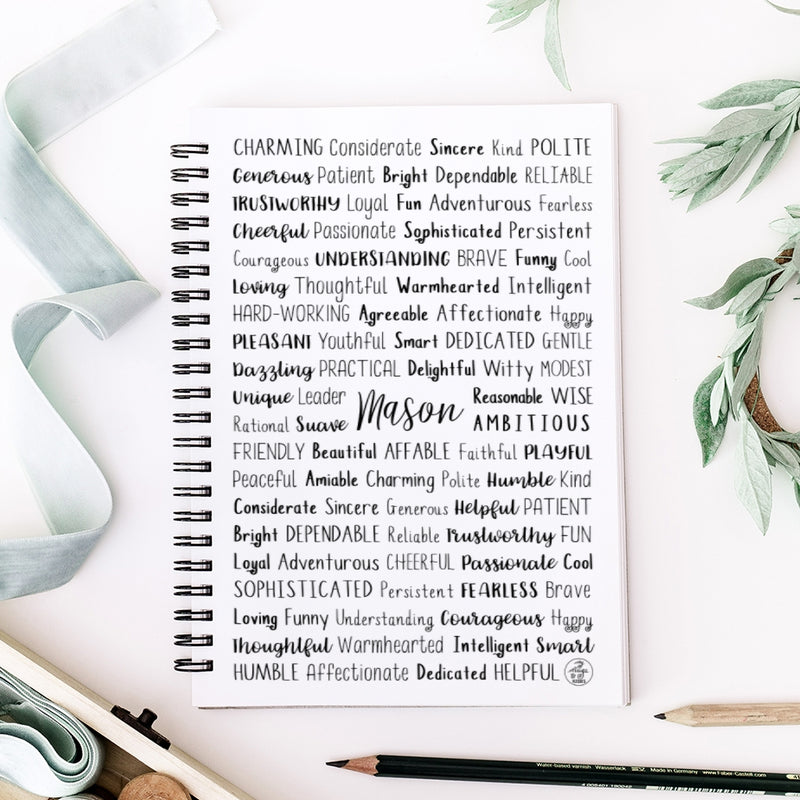 CHARMING Considerate Sincere Kind POLITE
Generous Patient Bright Dependable RELIABLE
TRUSTWORTHY Loyal Fun Adventurous Fearless
Cheerful Passionate Sophisticated Persistent
Courageous UNDERSTANDING BRAVE Funny Cool
Loving Thoughtful Warmhearted Intelligent
HARD-WORKING Agreeable Affectionate Happy
PLEASANT Youthful Smart DEDICATED GENTLE
Dazzling PRACTICAL Delightful Witty MODEST
Unique Leader Reasonable WISE
Mason
Rational Suave AMBITIOUS
FRIENDLY Beautiful AFFABLE Faithful PLAYFUL
Peaceful Amiable Charming Polite Humble Kind
Considerate Sincere Generous Helpful PATIENT
Bright DEPENDABLE Reliable Trustworthy FUN
Loyal Adventurous CHEERFUL Passionate Cool
SOPHISTICATED Persistent FEARLESS Brave
Loving Funny Understanding Courageous Happy
Thoughtful Warmhearted Intelligent Smart
HUMBLE Affectionate Dedicated HELPFUL
Water-based varnish Wasserlack Made in Germany www.Faber-Castell.com